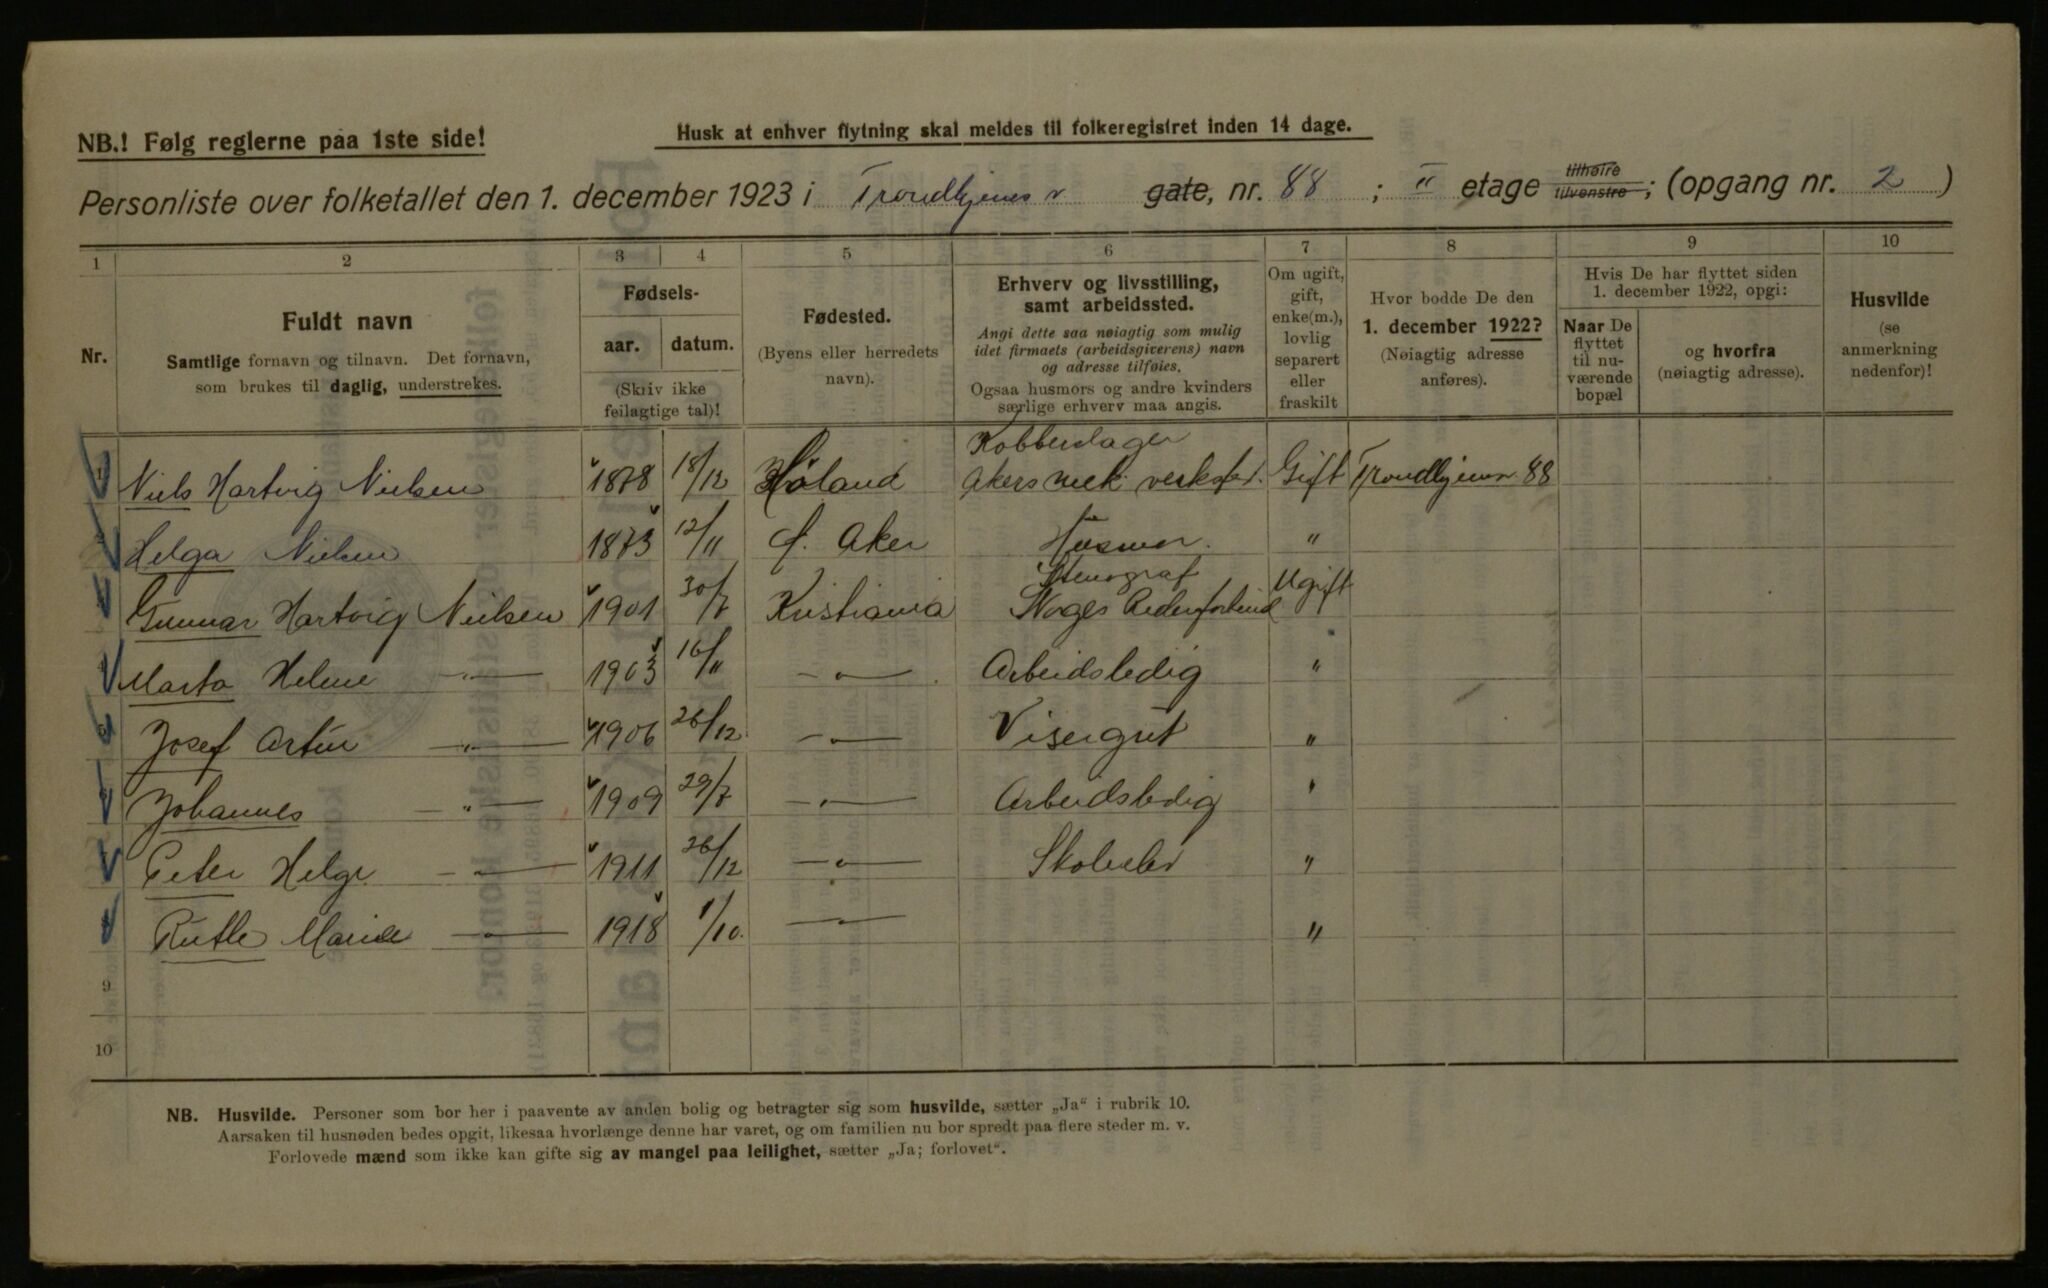 NB.! Følg reglerne paa 1ste side!
Husk at enhver flytning skal meldes til folkeregistret inden 14 dage.
Personliste over folketallet den 1. december 1923 i Trondhjems v gate, nr. 88 ; II etage tilhøire tilvenstre ; (opgang nr. 2 )
1 2 3 4 5 6 7 8 9 10
Nr.
Fuldt navn
Samtlige fornavn og tilnavn. Det fornavn,
som brukes til daglig, understrekes.
Fødsels-
aar. datum.
(Skriv ikke
feilagtige tal)!
Fødested.
(Byens eller herredets
navn).
Erhverv og livsstilling,
samt arbeidssted.
Angi dette saa nøiagtig som mulig
idet firmaets (arbeidsgiverens) navn
og adresse tilføies.
Ogsaa husmors og andre kvinders
særlige erhverv maa angis.
Om ugift,
gift,
enke(m.),
lovlig
separert
eller
fraskilt
Hvor bodde De den
1. december 1922?
(Nøiagtig adresse
anføres).
Hvis De har flyttet siden
1. december 1922, opgi:
Naar De
flyttet
til nu-
værende
bopæl
og hvorfra
(nøiagtig adresse).
Husvilde
(se
anmerkning
nedenfor)!
1 Niels Hartvig Nielsen 1878 18/12 Høland Kobberslager Akers mek. verksted. Gift Trondhjemsv. 88
2 Helga Nielsen 1873 12/11 Ø. Aker Husmor. "
3 Gunnar Hartvig Nielsen 1901 30/7 Kristiania Stenograf Norges Rederforbund Ugift
4 Marta Helene —"— 1903 16/11 —"— Arbeidsledig "
5 Josef Artur —"— 1906 26/12 —"— Visergut "
6 Johannes —"— 1909 29/7 —"— Arbeidsledig "
7 Peter Helge —"— 1911 26/12 —"— Skoleelev "
8 Ruth Marie —"— 1918 1/10. —"— "
9
10
NB. Husvilde. Personer som bor her i paavente av anden bolig og betragter sig som husvilde, sætter „Ja“ i rubrik 10.
Aarsaken til husnøden bedes opgit, likesaa hvorlænge denne har varet, og om familien nu bor spredt paa flere steder m. v.
Forlovede mænd som ikke kan gifte sig av mangel paa leilighet, sætter „Ja; forlovet“.